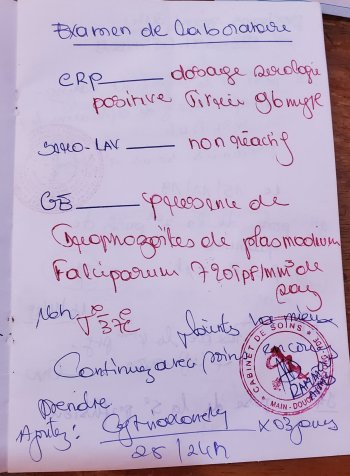 Examen de Laboratoire
CRP ___ dosage serologie
positive Titrée 96 mg/l
SERO-LAV ___ non réactif
GE ___ présence de
Trophozoïtes de plasmodium
Falciparum 7201pf/mm³ de
sang
T° 37°C
plaints va mieux
Continuez avec soins en cours
prendre
Ajoutez: 2S/24h x 03 jours
CABINET DE SOINS
MAIN-DOU